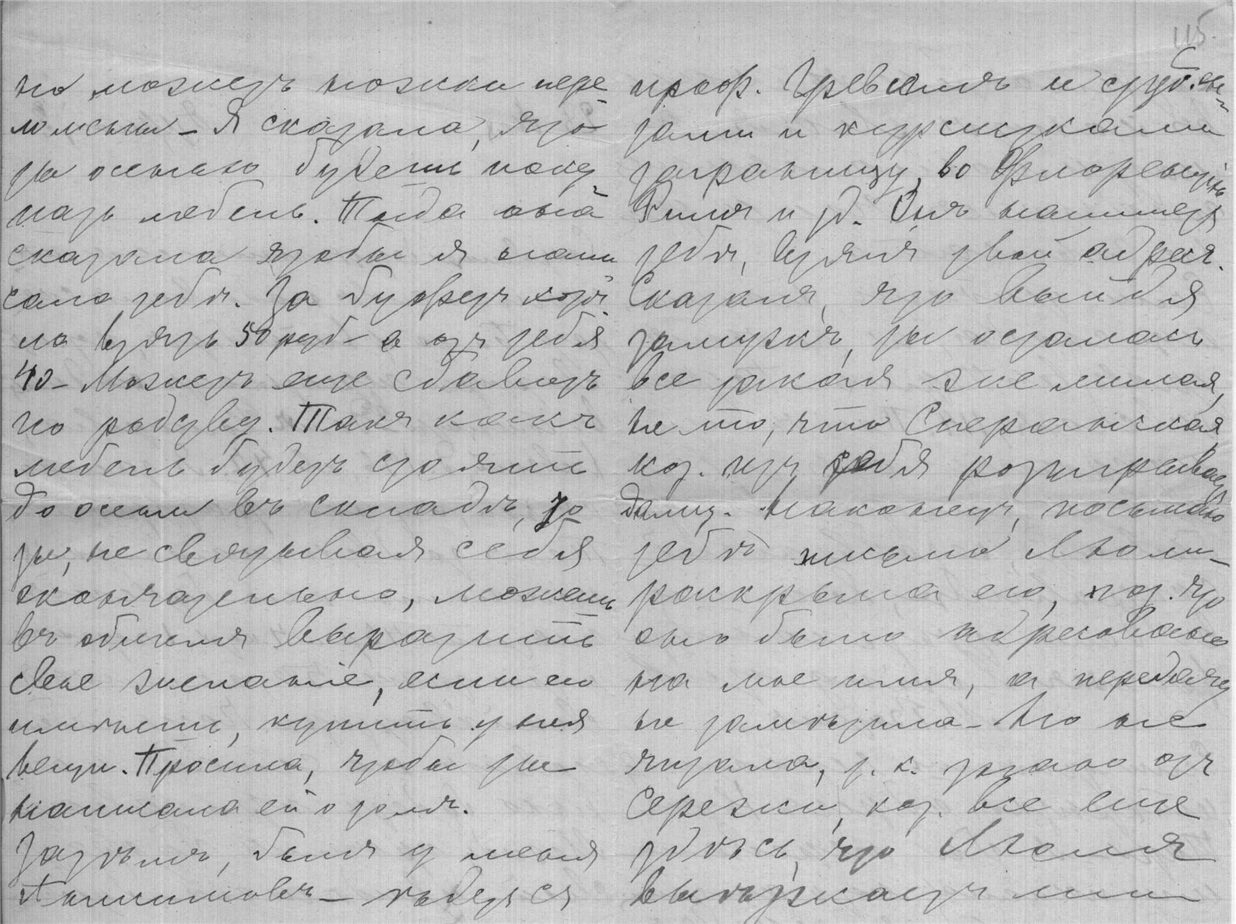 но можетъ ножки пере
ломаны – Я сказала, что
ты осенью будешь поку
пать мебель. Тогда она
сказала чтобы я напи
сала тебѣ. За буфетъ хотѣ
ла взять 50 руб – а съ тебя
40 – Можетъ еще сбавитъ
по родству. Такъ какъ
мебель будетъ стоять
до осени въ складѣ, то
ты, не связывая себя
окончательно, можешь
въ общемъ выразить
свое желаніе, если его
имѣешь, купить у нея
вещи. Просила, чтобы ты
написала ей о томъ.
Затѣмъ, былъ у меня
Анисимовъ – ѣдетъ съ
115.
проф. Гревсомъ и студ.
тами и курсистками
заграницу, во Флоренцію,
Римъ и т.д. Онъ напишетъ
тебѣ, взялъ твой адресъ.
Сказалъ, что выйдя
замужъ, ты осталась
все такая же милая,
не то, что Сперанская
кот. изъ себя разыгрываетъ
даму. Наконецъ, посылаю
тебѣ письмо Люли –
раскрыла его, пот. что
оно было адресовано
на мое имя, а передачу
не замѣтила – Но не
читала, т. к. узнаю отъ
Сережи, кот. все еще
здѣсь, что Люля